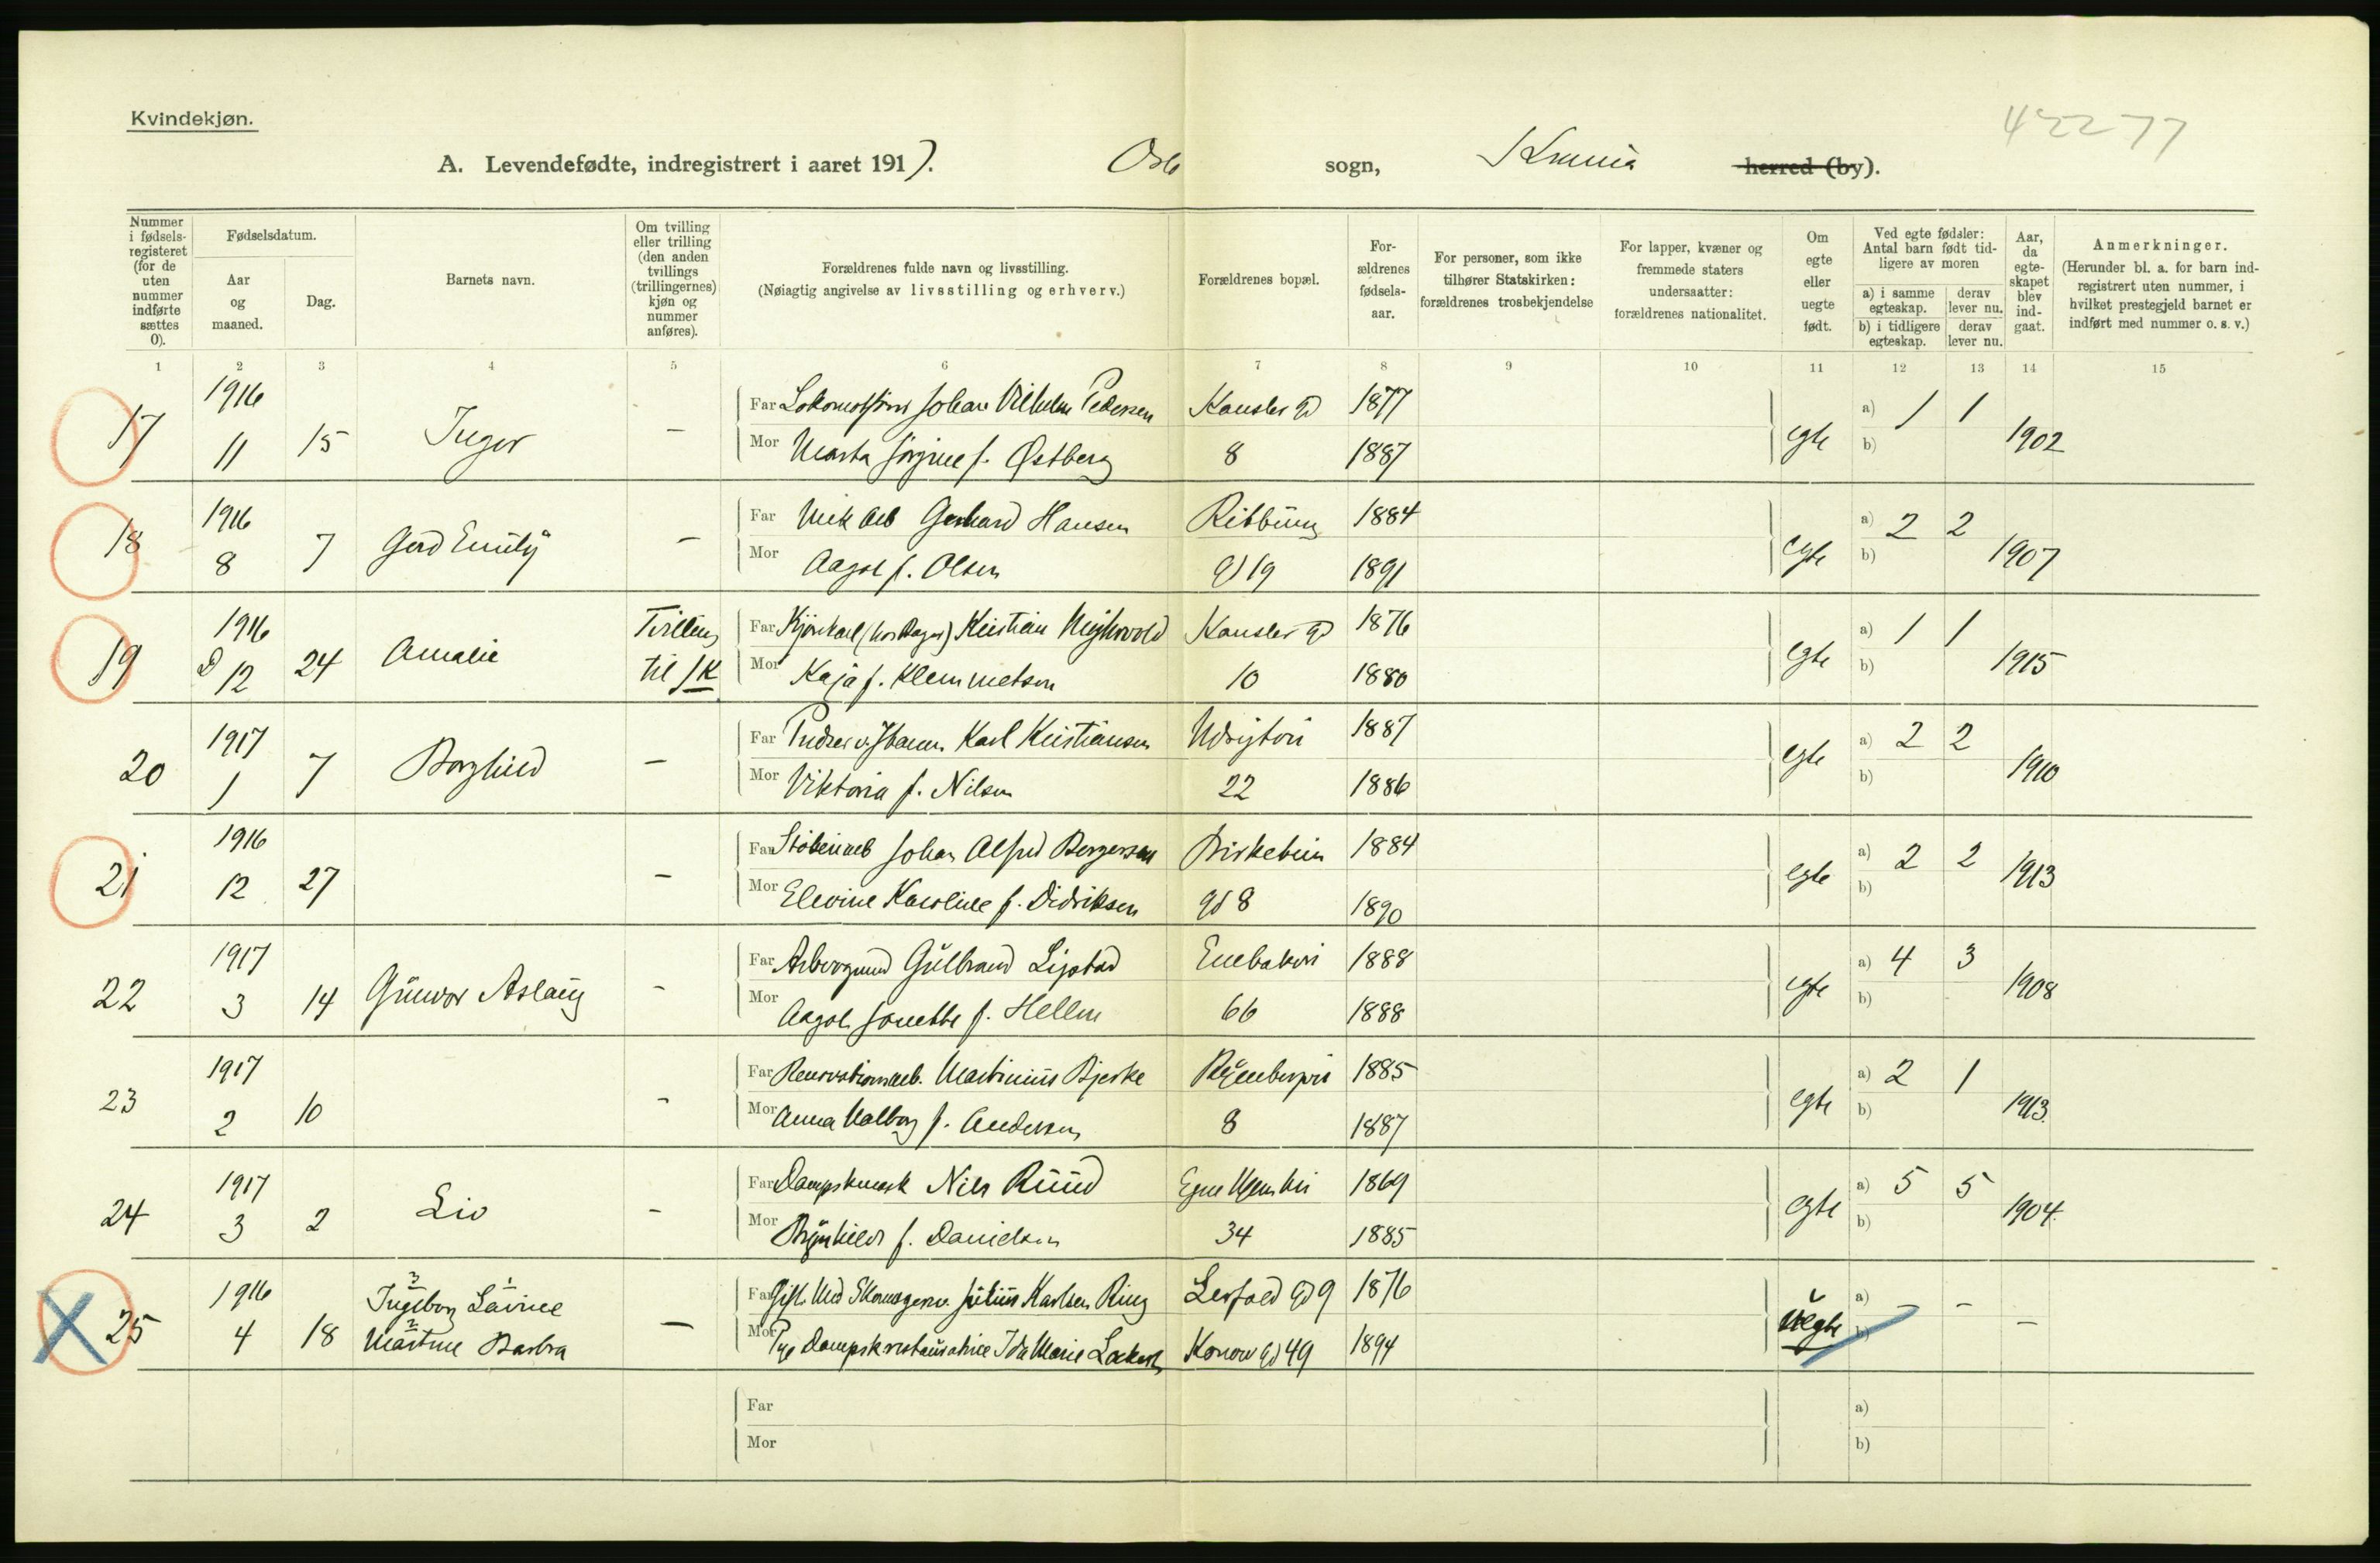 Kvindekjøn.
42277
A. Levendefødte, indregistrert i aaret 1917. Oslo sogn, Krnia herred (by).
Nummer i fødsels-registeret (for de uten nummer indførte sættes 0).
Fødselsdatum.
Aar og maaned.
Dag.
Barnets navn.
Om tvilling eller trilling (den anden tvillings (trillingernes) kjøn og nummer anføres).
Forældrenes fulde navn og livsstilling.
(Nøiagtig angivelse av livsstilling og erhverv.)
Forældrenes bopæl.
For-ældrenes fødsels-aar.
For personer, som ikke tilhører Statskirken: forældrenes trosbekjendelse
For lapper, kvæner og fremmede staters undersaatter: forældrenes nationalitet.
Om egte eller uegte født.
Ved egte fødsler: Antal barn født tid-ligere av moren
a) i samme egteskap. derav lever nu.
b) i tidligere egteskap. derav lever nu.
Aar, da egte-skapet blev ind-gaat.
Anmerkninger.
(Herunder bl. a. for barn ind-registrert uten nummer, i hvilket prestegjeld barnet er indført med nummer o. s. v.)
1 2 3 4 5 6 7 8 9 10 11 12 13 14 15
1916 Far Johan Vilhelm Pedersen Kansler gd 1877 a) 1 1
17 11 15 Inger - Mor Marta Jørgine f. Østberg 8 1887 egte b) 1902
1916 Far Mek arb Gerhard Hansen Ribbung 1884 a) 2 2
18 8 7 Gerd Emily - Mor Aagot f. Olsen gd 19 1891 egte b) 1907
1916 Tvilling Far Kjørekarl Kristian Kansler gd 1876 a) 1 1
19 D 12 24 Amalie til 1K Mor Kaja f. Klemmetsen 10 1880 egte b) 1915
1917 Far Karl Kristiansen 1887 a) 2 2
20 1 7 Borghild - Mor Viktoria f. Nilsen 22 1886 egte b) 1910
1916 Far Støberiarb Johan Alfred Bergersen Birkebein 1884 a) 2 2
21 12 27 - Mor Elevine Karoline f. Didriksen gd 8 1890 egte b) 1913
1917 Far Gulbrand Lipstad Enebakvei 1888 a) 4 3
22 3 14 Gunvor Aslaug - Mor Aagot Jonette f. Hellem 66 1888 egte b) 1908
1917 Far Renovationsarb. Martinius Bjerke Ryenbergvei 1885 a) 2 1
23 2 10 - Mor Anna Valborg f. Andersen 8 1887 egte b) 1913.
1917 Far Dampskmask Nils Ruud 1869 a) 5 5
24 3 2 Liv - Mor Brynhild f. Danielsen 34 1885 egte b) 1904.
1916 Ingeborg Lavine Far Gift. Med Skomagersv. Julius Karlsen Ring Leifald gd 9 1876 a) - -
25 4 18 Martine Barbra - Mor Pge Dampskrestauratrice Ida Marie Konow gd 49 1894 uegte b) -
Far a)
Mor b)